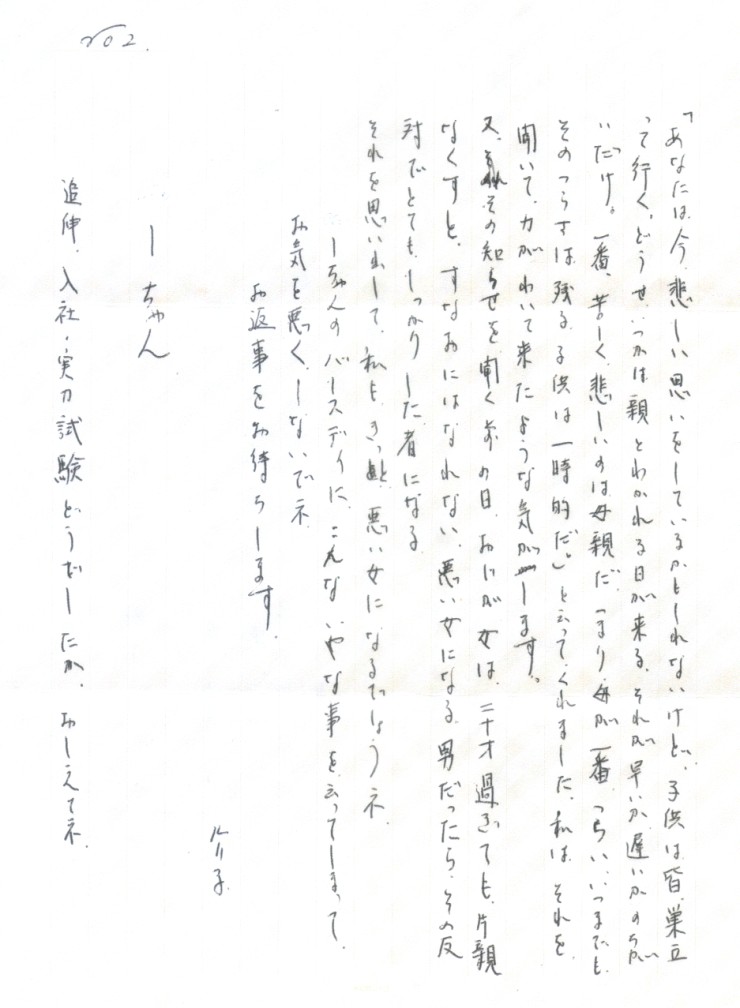 No2.
「あなたは、今、悲しい思いをしているかもしれないけど、子供は皆、巣立
って行く。どうせ、いつかは親とわかれる日が来る。それが早いか遅いかのちが
いだけ。一番、苦しく、悲しいのは母親だ。つまり、母が一番、つらい、いつまでも
そのつらさは残る。子供は一時的だ。」と云って、くれました。私は、それを
聞いて、力がわいて来たような気がします。
又、その知らせを聞く前の日、おじが女は、二十才過ぎても、片親
なくすと、すなおにはなれない、悪い女になる、男だったら、その反
対でとてもしっかりした者になる。
それを思い出して、私も、きっと、悪い女になるでしょうネ
しーちゃんのバースディに、こんないやな事を云ってしまって、
お気を悪く、しないでネ
お返事をお待ちします。
介子
しーちゃん
追伸、入社・実力試験どうだしたか、おしえてネ